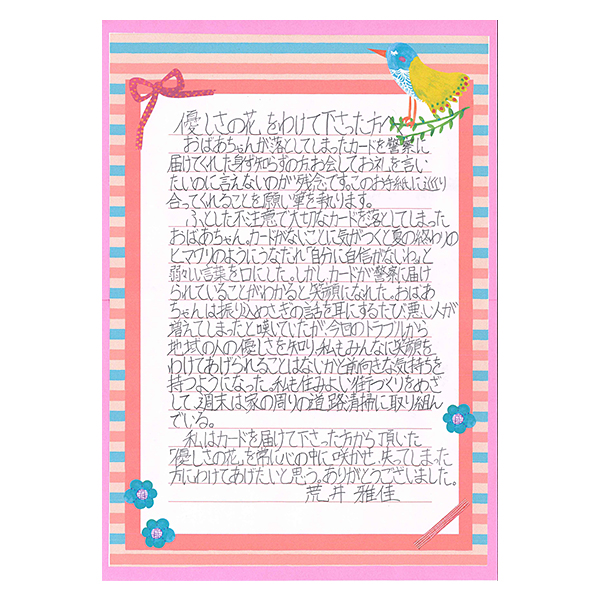 優しさの花をわけて下さった方へ
おばあちゃんが落としてしまったカードを警察に
届けてくれた身ず知らずの方お会してお礼を言い
たいのに言えないのが残念です。このお手紙に巡り
合ってくれることを願い筆を執ります。
ふとした不注意で大切なカードを落としてしまった
おばあちゃん。カードがないことに気がつくと夏の終わりの
ヒマワリのようにうなだれ「自分に自信がないわ。」と
弱々しい言葉を口にした。しかし、カードが警察に届け
られていることがわかると笑顔になれた。おばあ
ちゃんは振り込めさぎの話を耳にするたび悪い人が
増えてしまったと嘆いていたが、今回のトラブルから
地域の人の優しさを知り、私もみんなに笑顔を
わけてあげられることはないかと前向きな気持ちを
持つようになった。私も住みよい街づくりをめざ
して週末は家の周りの道路清掃に取り組ん
でいる。
私はカードを届けて下さった方から頂いた
「優しさの花」を常に心の中に咲かせ、失ってしまった
方にわけてあげたいと思う。ありがとうございました。
荒井 雅佳